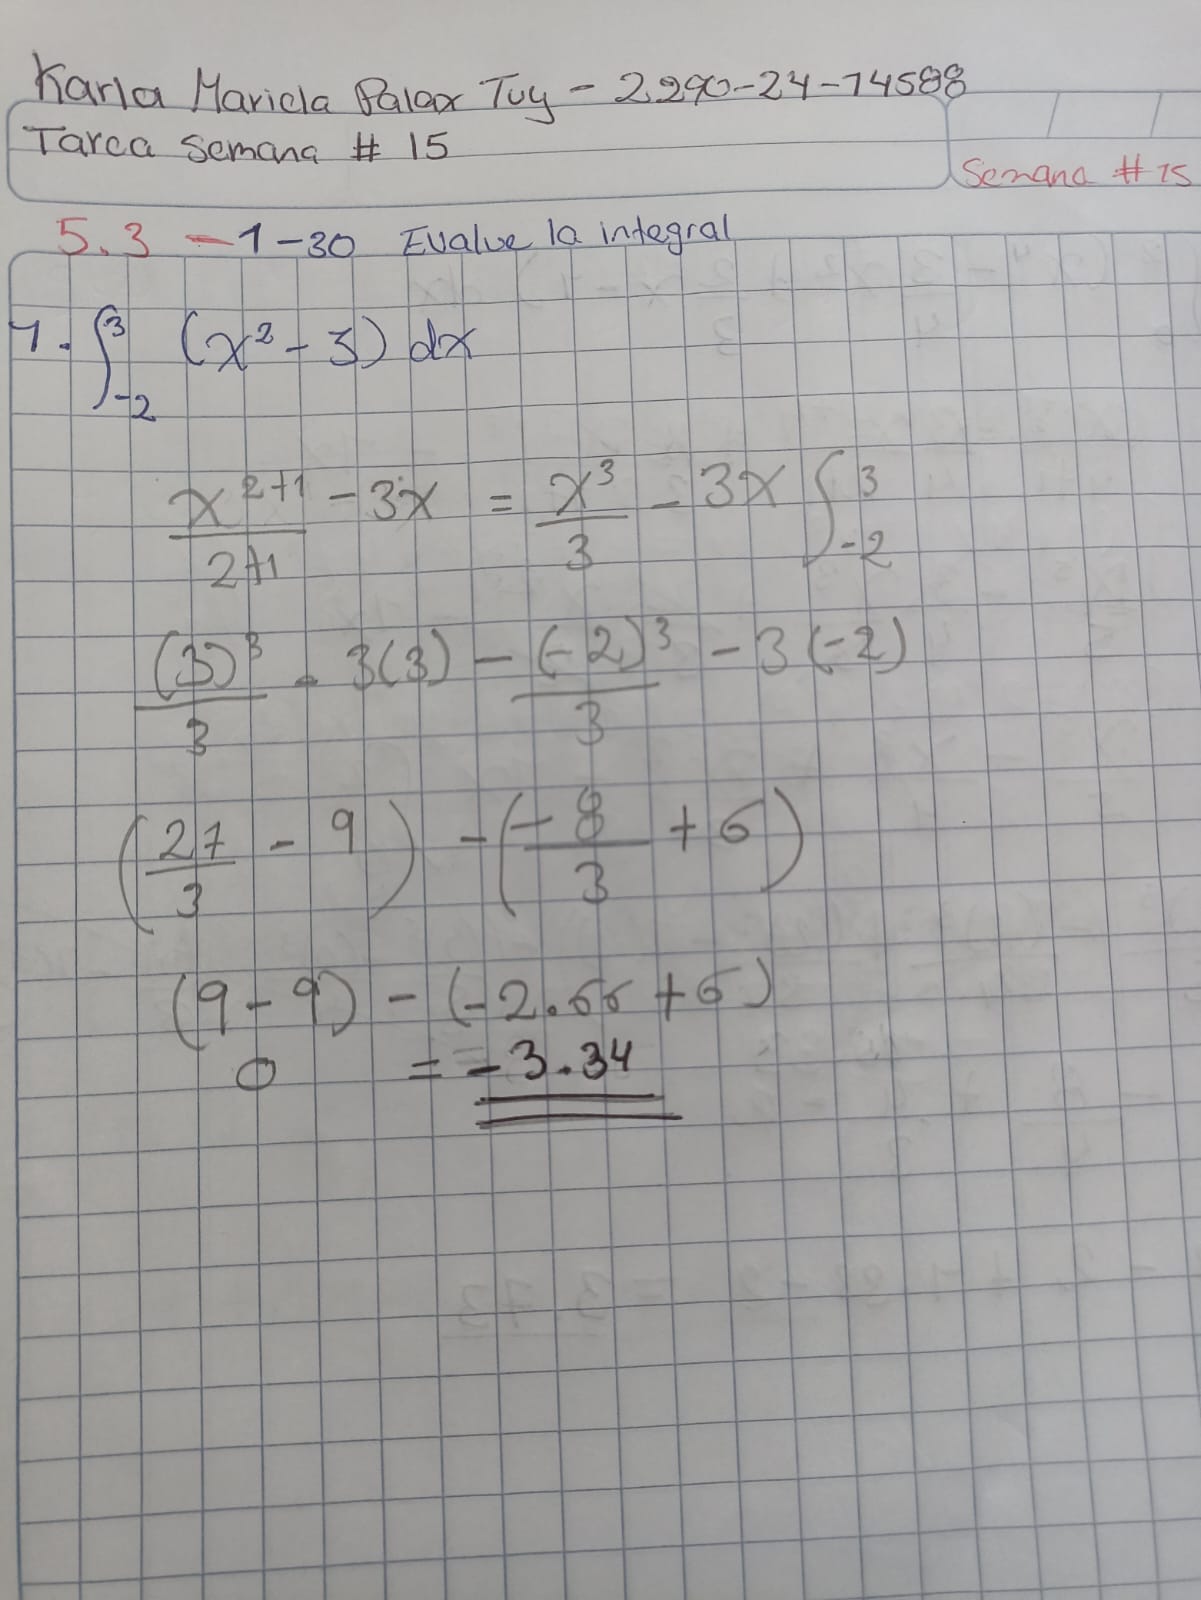 Karla Mariela Palax Tuy - 2290-24-14588
Tarea semana # 15
Semana #15
5.3 - 1-30 Evalue la integral
1. ∫_{-2}^{3} (x² - 3) dx
x^{2+1}/2+1 - 3x = x³/3 - 3x ∫_{-2}^{3}
(3)³/3 - 3(3) - (-2)³/3 - 3(-2)
(27/3 - 9) - (-8/3 + 6)
(9 - 9) - (-2.66 + 6)
0 = -3.34